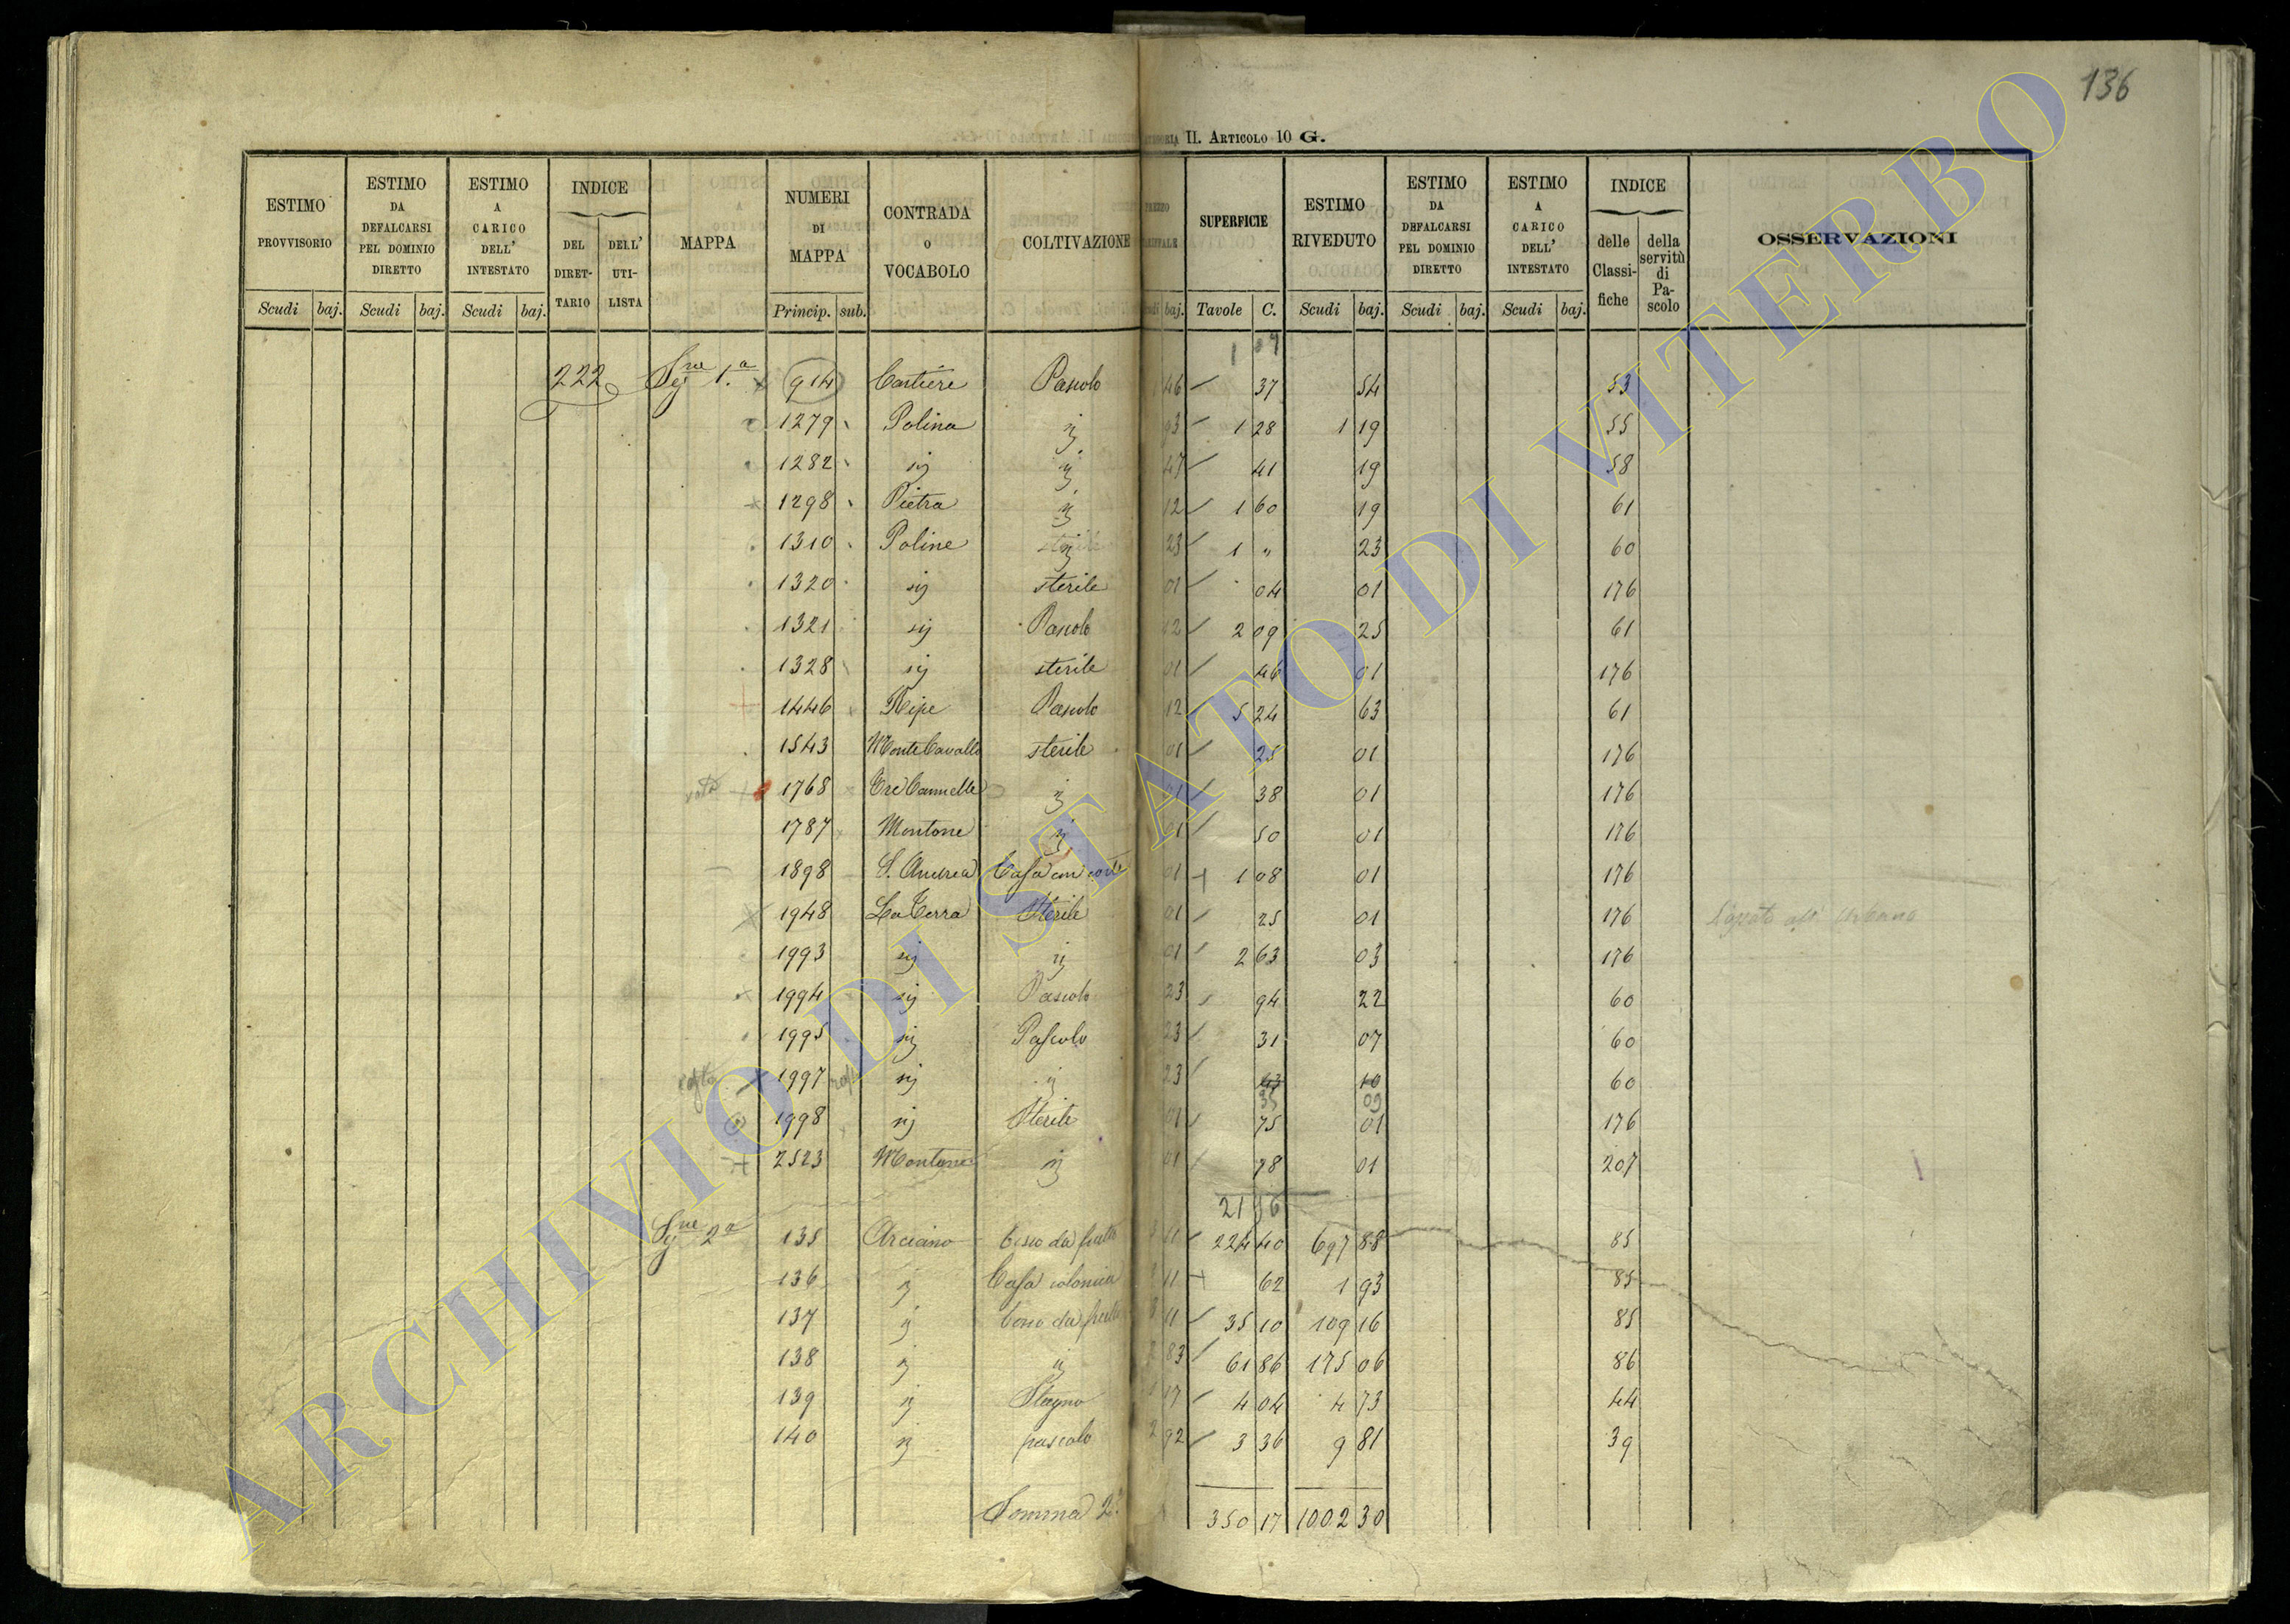 136
II. Articolo 10 G.
ESTIMO PROVVISORIO Scudi baj. ESTIMO DA DEFALCARSI PEL DOMINIO DIRETTO Scudi baj. ESTIMO A CARICO DELL' INTESTATO Scudi baj. INDICE DEL DIRET-TARIO DELL' UTI-LISTA MAPPA NUMERI DI MAPPA Princip. sub. CONTRADA O VOCABOLO COLTIVAZIONE baj. SUPERFICIE Tavole C. ESTIMO RIVEDUTO Scudi baj. ESTIMO DA DEFALCARSI PEL DOMINIO DIRETTO Scudi baj. ESTIMO A CARICO DELL' INTESTATO Scudi baj. INDICE delle Classi-fiche della servitù di Pa-scolo OSSERVAZIONI
222 1.a 914 Cartiere Pascolo 46 37 54 53
1279 Polina 1 28 1 19 55
1282 47 41 19 58
1298 Pietra 12 1 60 19 61
1310 Poline 23 1 " 23 60
1320 sterile 01 04 01 176
1321 Pascolo 12 2 09 25 61
1328 sterile 01 46 01 176
1446 Ripe Pascolo 12 5 24 63 61
1543 Monte Cavallo sterile 01 25 01 176
1768 Tre Cannelle 01 38 01 176
1787 Montone 01 50 01 176
1898 S. Andrea Casa con corte 01 1 08 01 176
1948 La Terra Sterile 01 25 01 176
1993 01 2 63 03 176
1994 Pascolo 23 94 22 60
1995 Pascolo 23 31 07 60
1997 23 43 10 60
35 09
1998 Sterile 01 75 01 176
2523 Montone 01 78 01 207
21 56
2a 135 Arciano Bosco da frutto 11 224 40 697 88 85
136 Casa colonica 11 62 1 93 85
137 bosco da frutto 11 35 10 109 16 85
138 83 61 86 175 06 86
139 Stagno 17 4 04 4 73 44
140 pascolo 2 92 3 36 9 81 39
Somma 2.a 350 17 1002 30
ARCHIVIO DI STATO DI VITERBO